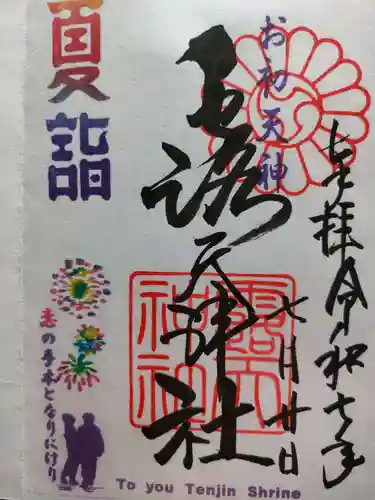 奉拝 令和七年
七月廿日
お初天神
露天神社
露天神社
夏詣
恋の手本となりにけり
To you Tenjin Shrine